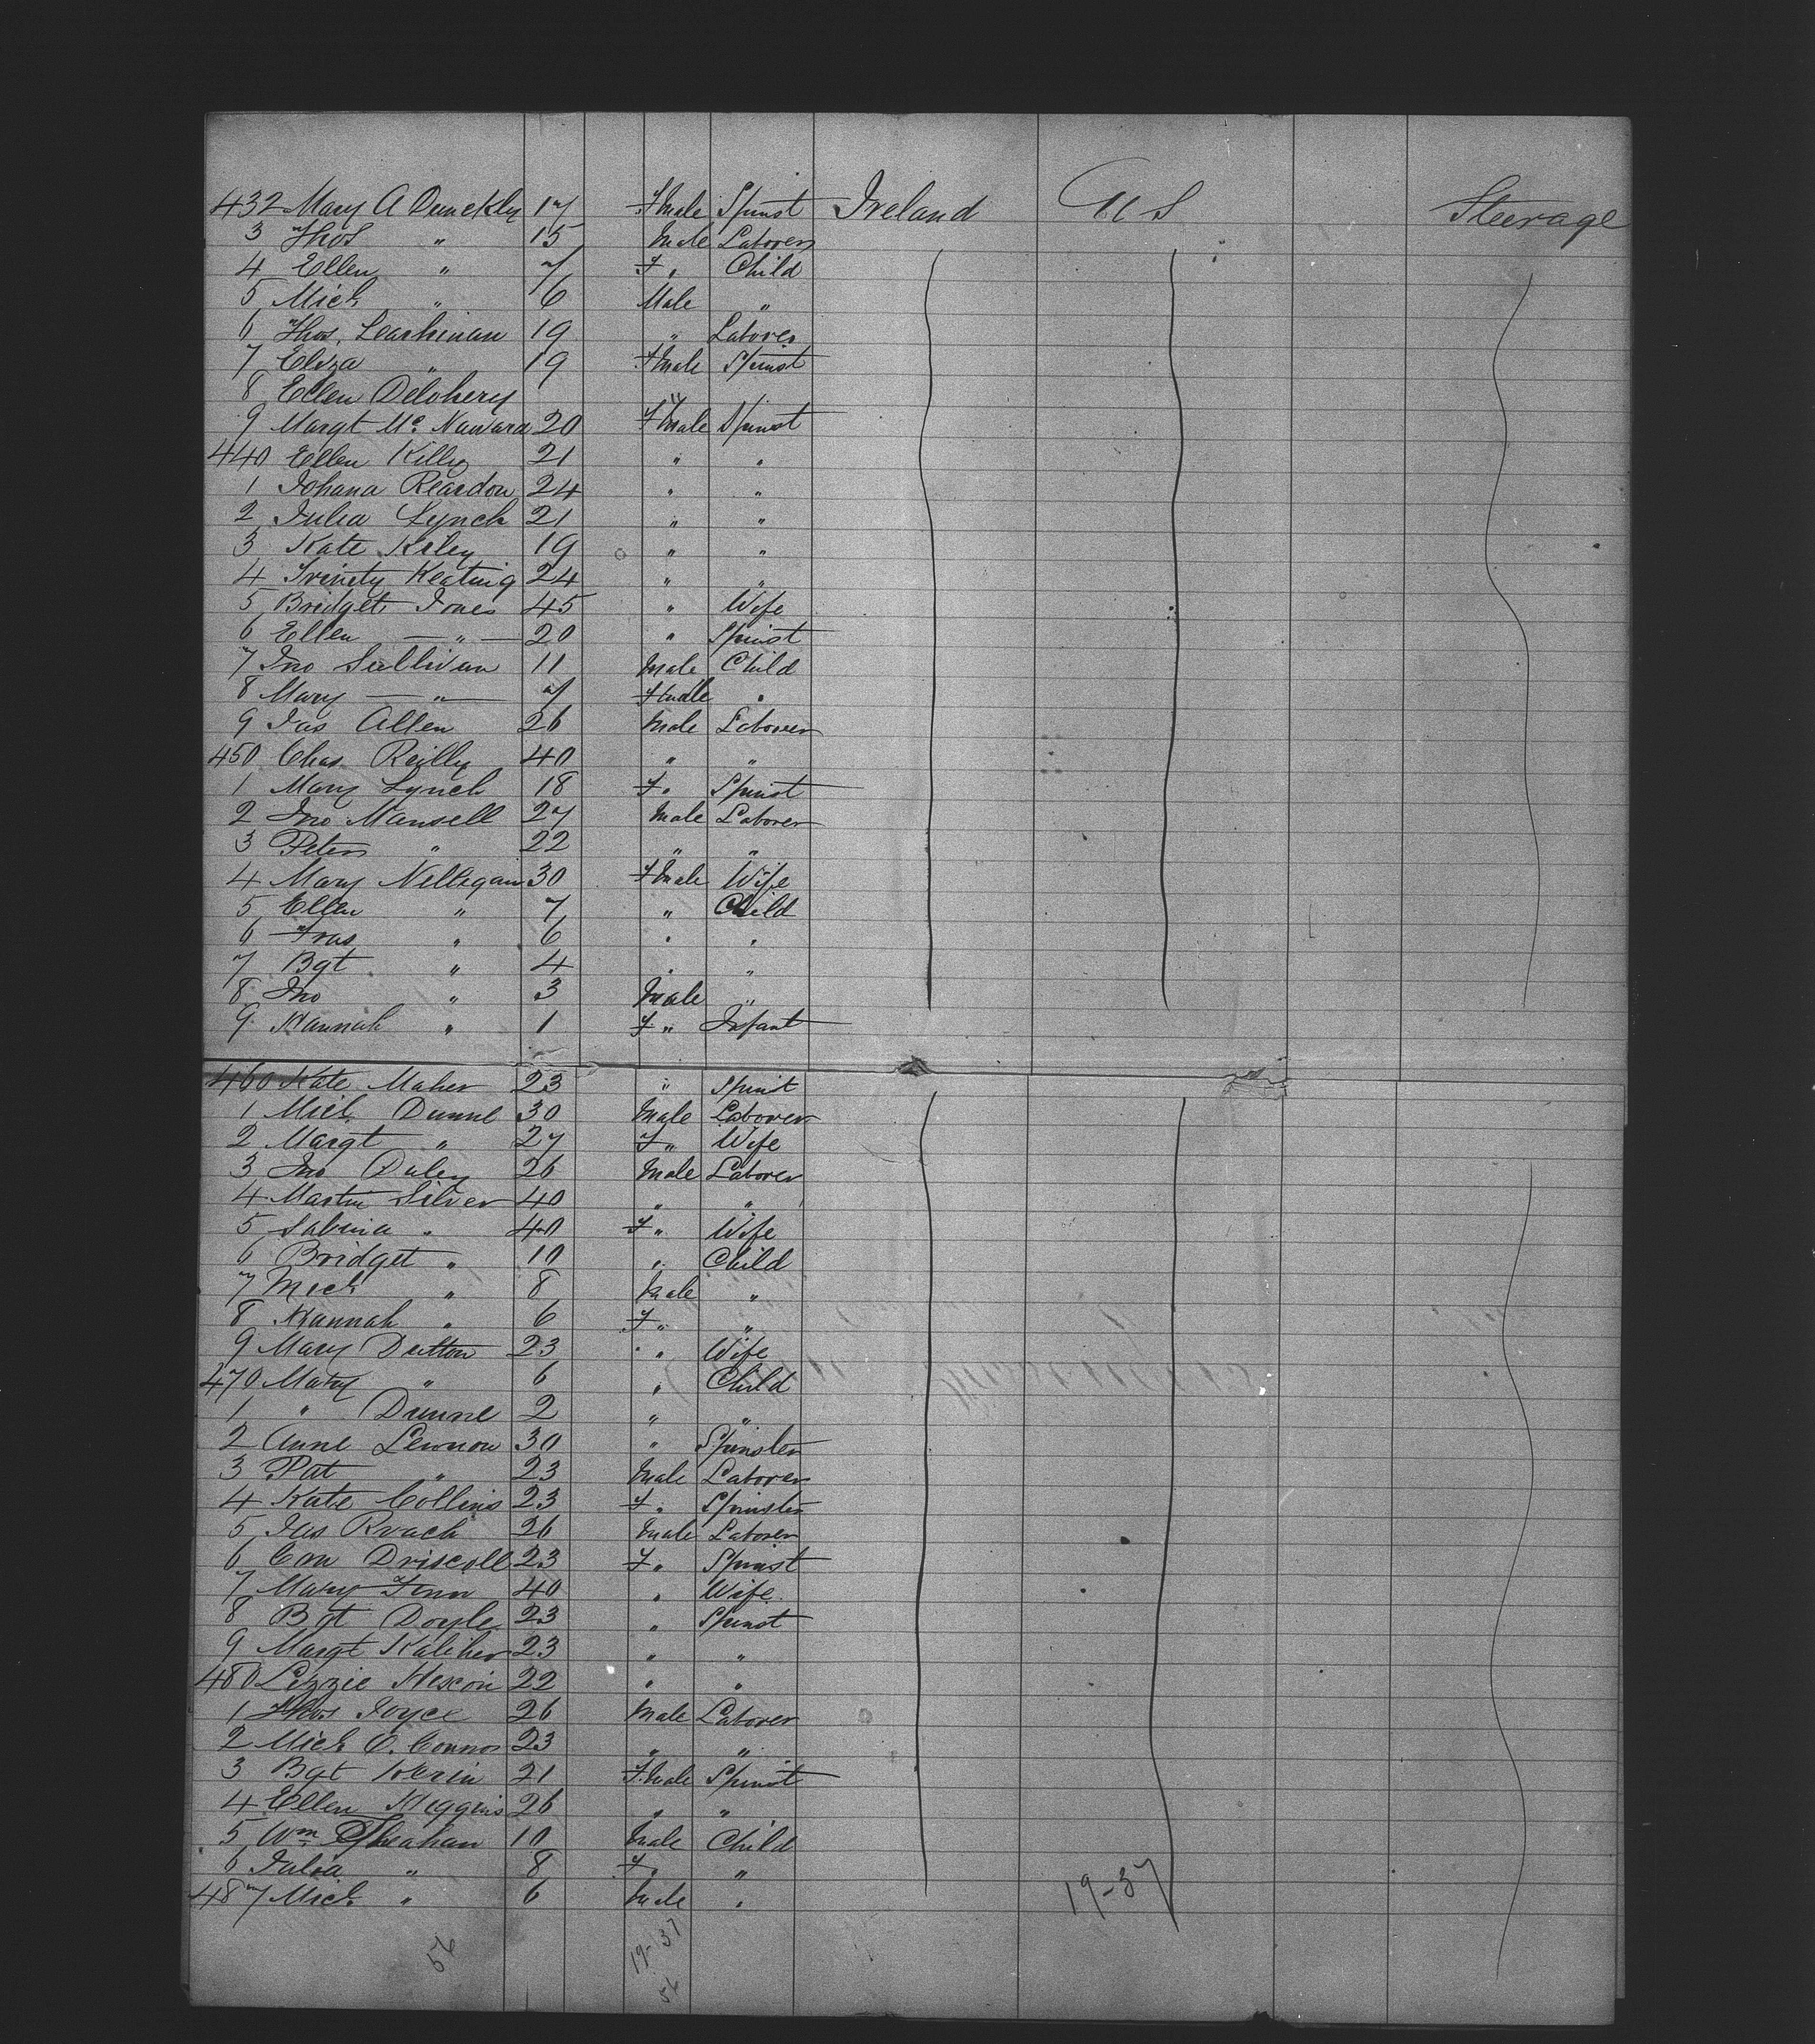 432 Mary A Dunckly 17 F Male Spinst Ireland U S Steerage
3 Thos " 15 Male Laborer
4 Ellen " 7 F " Child
5 Mich " 6 Male "
6 Thos. Leashinan 19 " Laborer
7 Eliza " 19 F Male Spinst
8 Ellen Delohery " "
9 Margt Mc Nawara 20 F Male Spinst
440 Ellen Killy 21 " "
1 Johana Reardon 24 " "
2 Julia Lynch 21 " "
3 Kate Kiley 19 " "
4 Trinity Keating 24 " "
5 Bridget Jones 45 " Wife
6 Ellen — " — 20 " Spinst
7 Jno Sullivan 11 Male Child
8 Mary — " — 7 F Male "
9 Jas Allen 26 Male Laborer
450 Chas Reilly 40 " "
1 Mary Lynch 18 F " Spinst
2 Jno Mansell 27 Male Laborer
3 Peter " 22 " "
4 Mary Nelligan 30 F Male Wife
5 Ellen " 7 " Child
6 Fras " 6 " "
7 Bgt " 4 " "
8 Jno " 3 Male "
9 Hannah " 1 F " Infant
460 Kate Maher 23 " Spinst
1 Mich Dunne 30 Male Laborer
2 Margt " 27 F " Wife
3 Jno Daley 26 Male Laborer
4 Martin Silver 40 " "
5 Sabina " 40 F " Wife
6 Bridget " 10 " Child
7 Mich " 8 Male "
8 Hannah " 6 F " "
9 Mary Dutton 23 " Wife
470 Mary " 6 " Child
1 " Dunne 2 " "
2 Anne Lennon 30 " Spinster
3 Pat " 23 Male Laborer
4 Kate Collins 23 F " Spinster
5 Jas Roach 26 Male Laborer
6 Driscoll 23 F " Spinst
7 Mary Finn 40 " Wife
8 Bgt Doyle 23 " Spinst
9 Margt Kaliher 23 " "
480 Lizzie 22 " "
1 Thos Joyce 26 Male Laborer
2 Mich O. Connor 23 " "
3 Bgt Kerin 21 F. Male Spinst
4 Ellen Higgins 26 " "
5 Wm Sheahan 10 Male Child
6 Julia " 8 F " "
487 Mich " 6 Male "
19-37
56 19-37
56